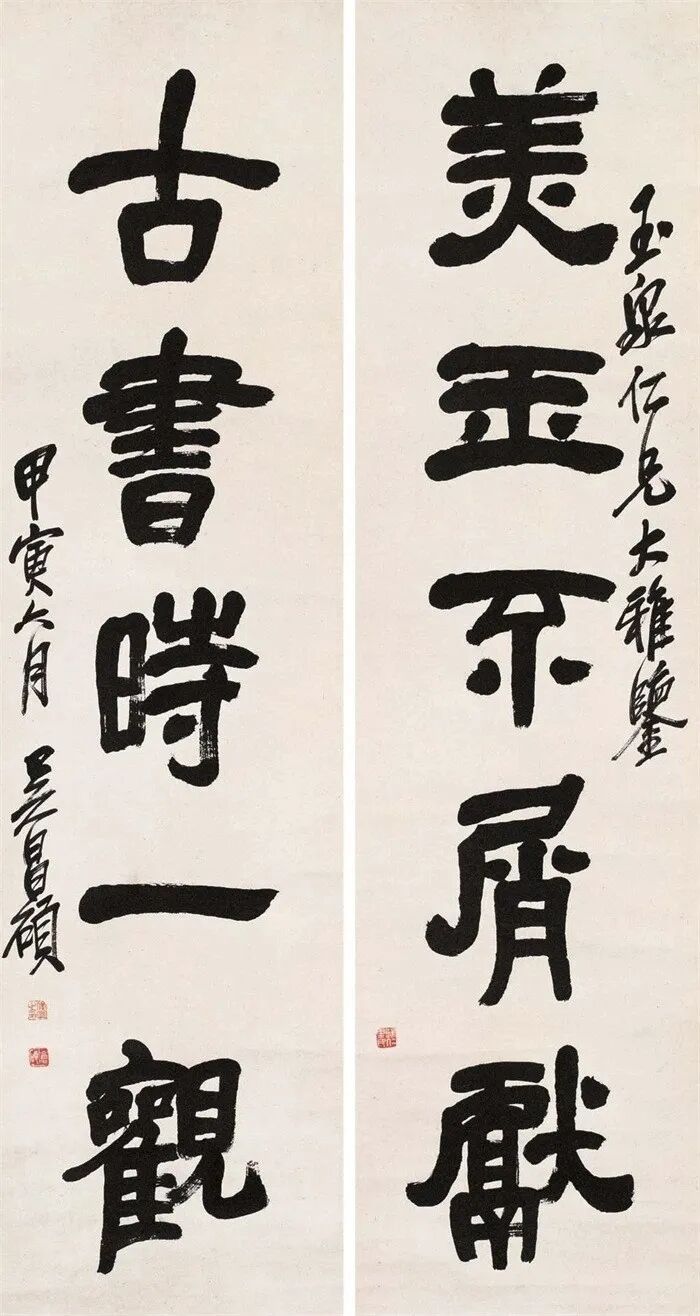 玉泉仁兄大雅鑒
美玉不屑獻
古書時一觀
甲寅六月 吴昌碩